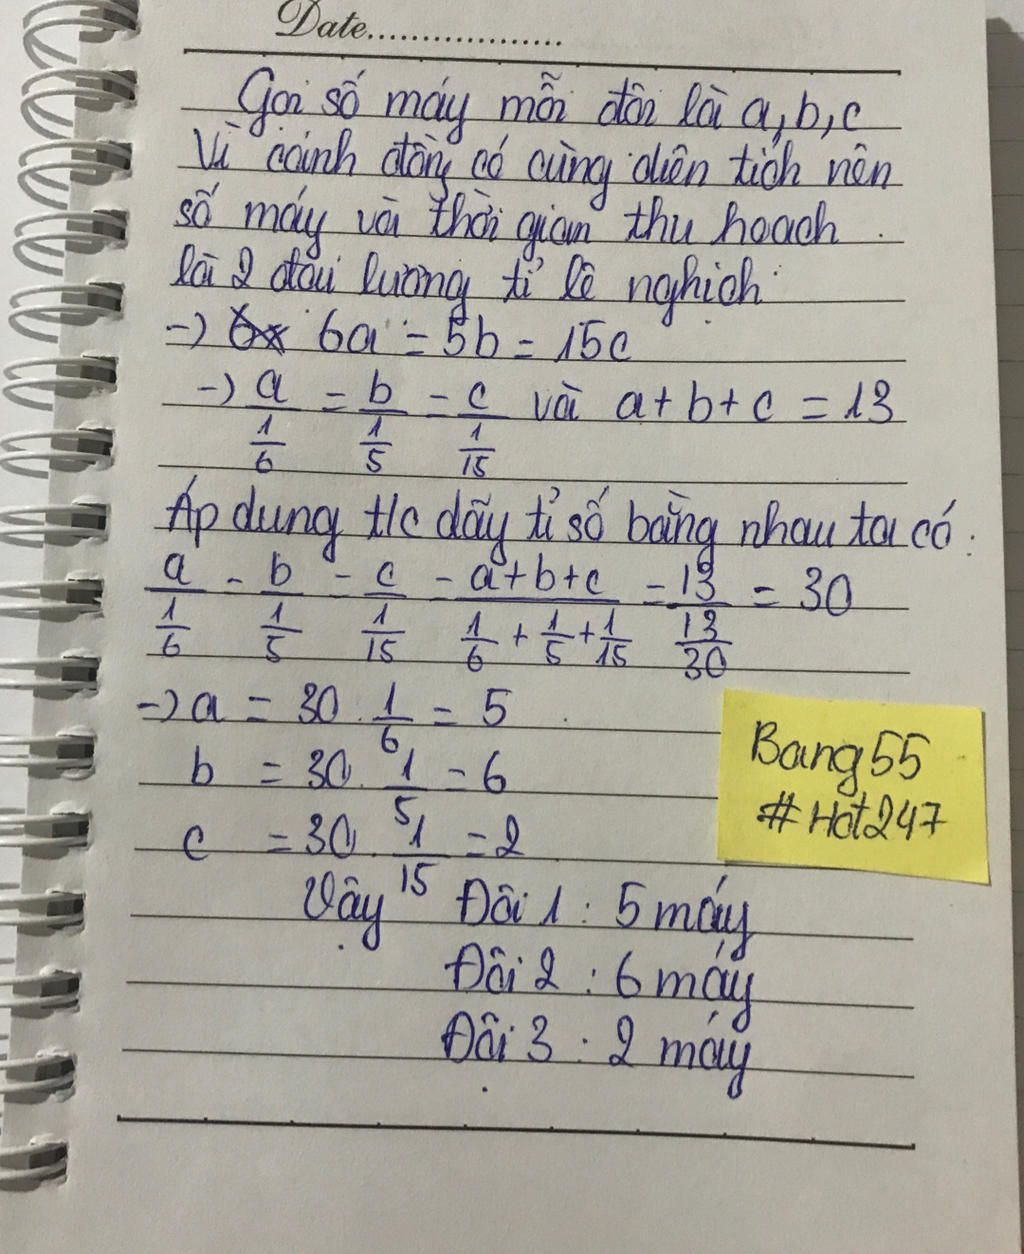 Date..................
Gọi số máy mỗi đội là a, b, c
Vì cánh đồng có cùng diện tích nên
số máy và thời gian thu hoạch
là 2 đại lượng tỉ lệ nghịch
-> 6a = 5b = 15c
-> a/(1/6) = b/(1/5) = c/(1/15) và a + b + c = 13
Áp dụng t/c dãy tỉ số bằng nhau ta có:
a/(1/6) = b/(1/5) = c/(1/15) = (a+b+c)/(1/6 + 1/5 + 1/15) = 13/(13/30) = 30
-> a = 30 . 1/6 = 5
b = 30 . 1/5 = 6
c = 30 . 1/15 = 2
Vậy Đội 1 : 5 máy
Đội 2 : 6 máy
Đội 3 : 2 máy
Bang55
#Hot247